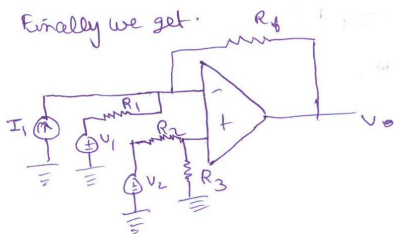 Finally we get.
Rf
R1
I1
V1
R2
V2
R3
Vo
-
+